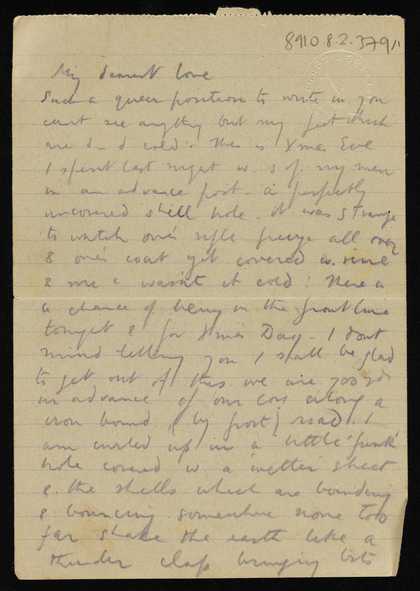 8910.8.2.379/1
My dearest love
Such a queer position to write in you
cant see anything but my feet which
are d-d cold. This is Xmas Eve
I spent last night w. 3 of my men
in an advance post - a perfectly
uncovered shell hole. It was strange
to watch one's rifle freeze all over
& one's coat get covered w. rime
& wasn't it cold! There's
a chance of being in the front line
tonight & for Xmas Day - I dont
mind telling you I shall be glad
to get out of this we are 700 yds
in advance of our Coys along a
iron bound (by frost) road. I
am curled up in a little 'funk'
hole covered w a wetter sheet
& the shells which are bounding
& bouncing somewhere none too
far shake the earth like a
thunder clap bringing bits